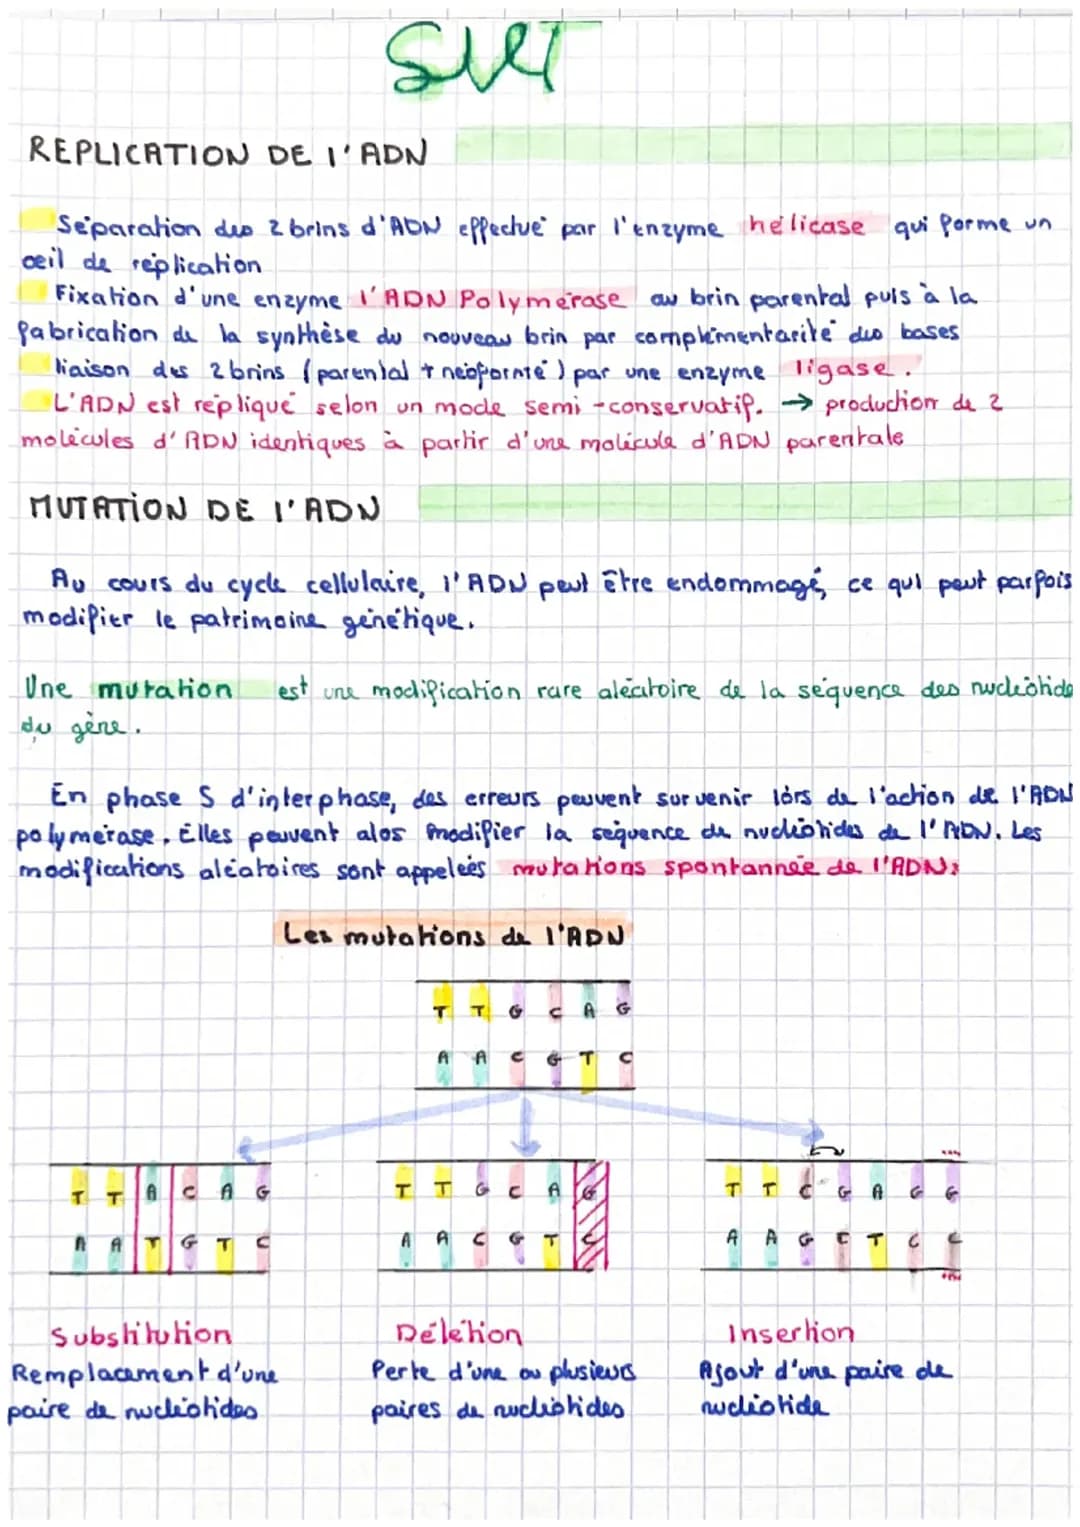 SVT
REPLICATION DE l'ADN
Séparation des 2 brins d'ADN effectué par l'enzyme hélicase qui forme un
œil de réplication
Fixation d'une enzyme l'ADN Polymérase au brin parental puis à la
fabrication de la synthèse du nouveau brin par complémentarité des bases
liaison des 2 brins (parental + néoformé) par une enzyme ligase.
L'ADN est répliqué selon un mode semi-conservatif. → production de 2
molécules d'ADN identiques à partir d'une molécule d'ADN parentale
MUTATION DE l'ADN
Au cours du cycle cellulaire, l'ADN peut être endommagé, ce qui peut parfois
modifier le patrimoine génétique.
Une mutation est une modification rare aléatoire de la séquence des nucléotide
du gène.
En phase S d'interphase, des erreurs peuvent survenir lors de l'action de l'ADN
polymérase. Elles peuvent alos modifier la séquence de nucléotides de l'ADN. Les
modifications aléatoires sont appelées mutations spontannée de l'ADN:
Les mutations de l'ADN
T T G C A G
A A C G T C
T T A C A G
A A T G T C
T T G C A G
A A C G T C
T T C G A G G
A A G C T C C
Substitution
Remplacement d'une
paire de nucléotides
Délétion
Perte d'une ou plusieurs
paires de nucléotides
Insertion
Ajout d'une paire de
nucléotide